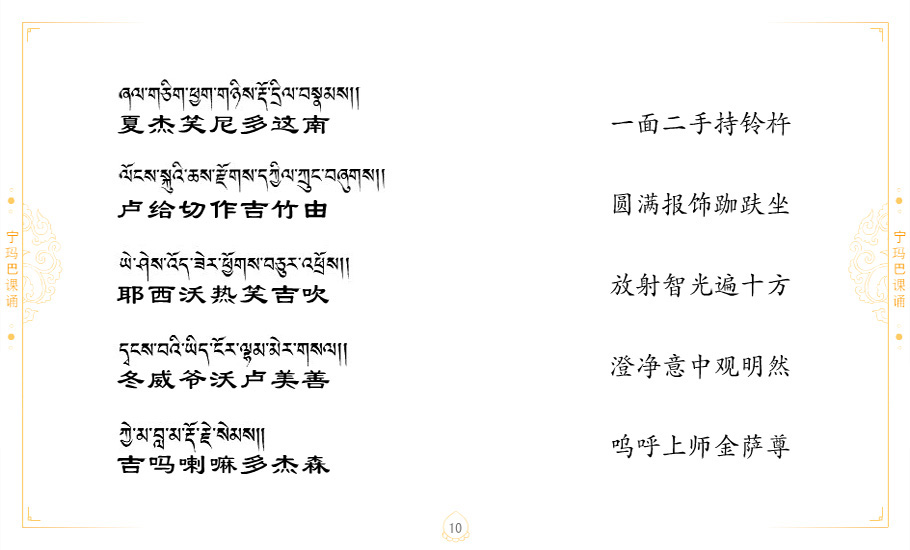 ཞལ་གཅིག་ཕྱག་གཉིས་རྡོ་དྲིལ་བསྣམས།།
夏杰笑尼多这南
一面二手持铃杵
ལོངས་སྐུའི་ཆས་རྫོགས་དཀྱིལ་ཀྲུང་བཞུགས།།
卢给切作吉竹由
圆满报饰跏趺坐
ཡེ་ཤེས་འོད་ཟེར་ཕྱོགས་བཅུར་འཕྲོས།།
耶西沃热笑吉吹
放射智光遍十方
དྭངས་བའི་ཡིད་ངོར་ལྷམ་མེར་གསལ།།
冬威爷沃卢美善
澄净意中观明然
ཀྱེ་མ་བླ་མ་རྡོ་རྗེ་སེམས།།
吉吗喇嘛多杰森
呜呼上师金萨尊
宁玛巴课诵
宁玛巴课诵
10